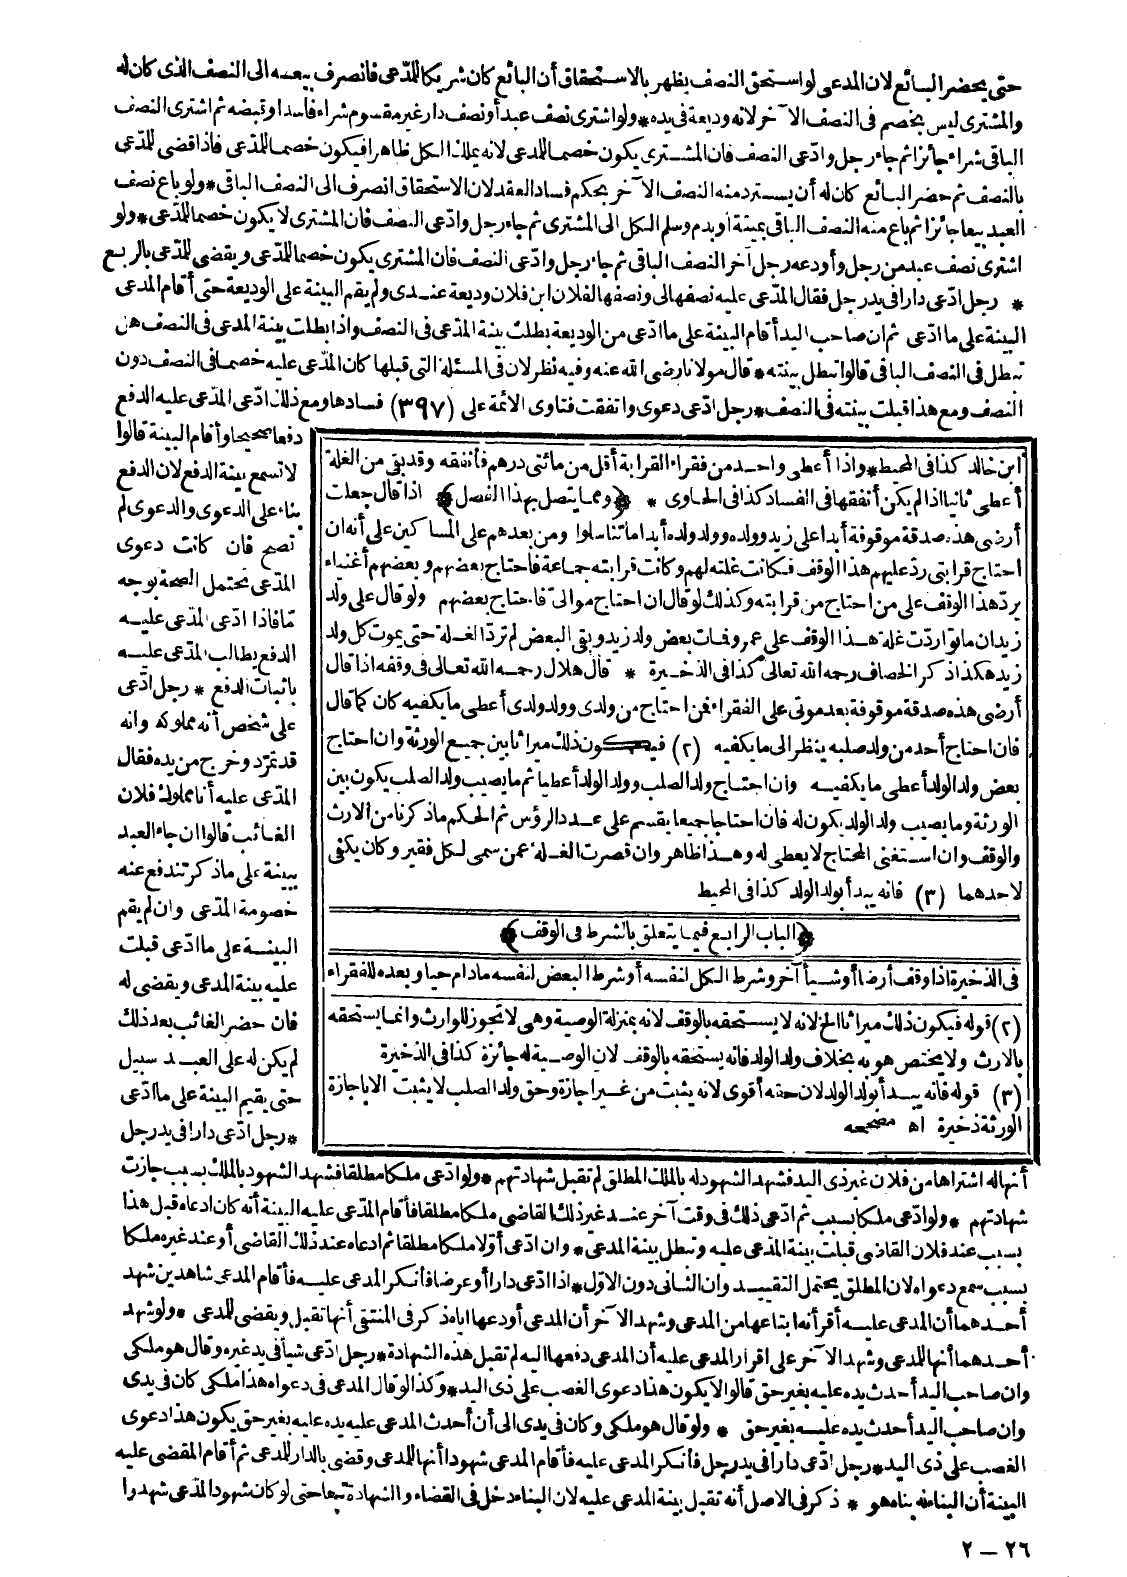 حتى يحضر البائع لان المدعى لو استحق النصف يظهر بالاستحقاق أن البائع كان شريكا للمدّعى فانصرف بيعه الى النصف الذى كان له
والمشترى ليس بخصم فى النصف الآخر لانه وديعة فى يده * ولو اشترى نصف عبد أو نصف دار غير مقسوم شراء فاسدا وقبضه ثم اشترى النصف
الباقى شراء جائزا ثم جاء رجل وادّعى النصف فان المشترى يكون خصما للمدعى لانه يملك الكل ظاهرا فيكون خصما للمدّعى فاذا قضى للمدّعى
بالنصف ثم حضر البائع كان له أن يسترد منه النصف الآخر بحكم فساد العقد لان الاستحقاق انصرف الى النصف الباقى * ولو باع نصف
العبد بيعا جائزا ثم باع منه النصف الباقى بميتة أو بدم وسلم الكل الى المشترى ثم جاء رجل وادّعى النصف فان المشترى لا يكون خصما للمدّعى * ولو
اشترى نصف عبد من رجل وأودعه رجل آخر النصف الباقى ثم جاء رجل وادّعى النصف فان المشترى يكون خصما للمدّعى ويقضى للمدّعى بالربع
* رجل ادّعى دارا فى يد رجل فقال المدّعى عليه نصفها لى ونصفها لفلان ابن فلان وديعة عندى ولم يقم البينة على الوديعة حتى أقام المدعى
البينة على ما ادّعى ثم ان صاحب اليد أقام البينة على ما ادّعى من الوديعة بطلت بينة المدّعى فى النصف واذا بطلت بينة المدعى فى النصف هل
تبطل فى النصف الباقى قالوا تبطل بينته * قال مولانا رضى الله عنه وفيه نظر لان فى المسئلة التى قبلها كان المدّعى عليه خصما فى النصف دون
النصف ومع هذا قبلت بينته فى النصف * رجل ادّعى دعوى واتفقت فتاوى الائمة على (٣٩٧) فسادها ومع ذلك ادّعى المدّعى عليه الدفع
دفعا صحيحا وأقام البينة قالوا
لا تسمع بينة الدفع لان الدفع
بناء على الدعوى والدعوى لم
تصح فان كانت دعوى
المدّعى تحتمل الصحة بوجه
مّا فاذا ادّعى المدّعى عليه
الدفع يطالب المدّعى عليه
باثبات الدفع * رجل ادّعى
على شخص أنه مملوكه وانه
قد تمرّد وخرج من يده فقال
المدّعى عليه أنا مملوك فلان
الغائب قالوا ان جاء العبد
ببينة على ما ذكر تندفع عنه
خصومة المدّعى وان لم يقم
البينة على ما ادّعى قبلت
عليه بينة المدعى ويقضى له
فان حضر الغائب بعد ذلك
لم يكن له على العبد سبيل
حتى يقيم البينة على ما ادّعى
* رجل ادّعى دارا فى يد رجل
ابن خالد كذا فى المحيط * واذا أعطى واحد من فقراء القرابة أقل من مائتى درهم فأنفقه وقد بقى من الغلة
أعطى ثانيا اذا لم يكن أنفقها فى الفساد كذا فى الحاوى * ﴿ومما يتصل بهذا الفصل﴾ اذا قال جعلت
أرضى هذه صدقة موقوفة أبدا على زيد وولده وولد ولده أبدا ما تناسلوا ومن بعدهم على المساكين على أنه ان
احتاج قرابتى ردّ عليهم هذا الوقف فكانت غلته لهم وكانت قرابته جماعة فاحتاج بعضهم وبعضهم أغنياء
يردّ هذا الوقف على من احتاج من قرابته وكذلك لو قال ان احتاج موالىّ فاحتاج بعضهم ولو قال على ولد
زيد ان ماتوا ردّت غلة هذا الوقف على عمرو فمات بعض ولد زيد وبقى البعض لم تردّ الغلة حتى يموت كل ولد
زيد هكذا ذكر الخصاف رحمه الله تعالى كذا فى الذخيرة * قال هلال رحمه الله تعالى فى وقفه اذا قال
أرضى هذه صدقة موقوفة بعد موتى على الفقراء فمن احتاج من ولدى وولد ولدى أعطى ما يكفيه كان كما قال
فان احتاج أحد من ولد صلبه ينظر الى ما يكفيه (٢) فيكون ذلك ميراثا بين جميع الورثة وان احتاج
بعض ولد الولد أعطى ما يكفيه وان احتاج ولد الصلب وولد الولد أعطيا ثم ما يصيب ولد الصلب يكون بين
الورثة وما يصيب ولد الولد يكون له فان احتاجا جميعا يقسم على عدد الرؤس ثم الحكم ما ذكرنا من الارث
والوقف وان استغنى المحتاج لا يعطى له وهذا ظاهر وان قصرت الغلة عمن سمى لكل فقير وكان يكفى
لاحدهما (٣) فانه يبدأ بولد الولد كذا فى المحيط
﴿الباب الرابع فيما يتعلق بالشرط فى الوقف﴾
فى الذخيرة اذا وقف أرضا أو شيأ آخر وشرط الكل لنفسه أو شرط البعض لنفسه ما دام حيا وبعده للفقراء
(٢) قوله فيكون ذلك ميراثا الخ لانه لا يستحقه بالوقف لانه بمنزلة الوصية وهى لا تجوز للوارث وانما يستحقه
بالارث ولا يختص هو به بخلاف ولد الولد فانه يستحقه بالوقف لان الوصية له جائزة كذا فى الذخيرة
(٣) قوله فانه يبدأ بولد الولد لان حقه أقوى لانه يثبت من غير اجازة وحق ولد الصلب لا يثبت الا باجازة
الورثة ذخيرة اه مصححه
أنها له اشتراها من فلان غير ذى اليد فشهد الشهود له بالملك المطلق لم تقبل شهادتهم * ولو ادّعى ملكا مطلقا فشهد الشهود بالملك بسبب جازت
شهادتهم * ولو ادّعى ملكا بسبب ثم ادّعى ذلك فى وقت آخر عند غير ذلك القاضى ملكا مطلقا فأقام المدّعى عليه البينة أنه كان ادعاه قبل هذا
بسبب عند فلان القاضى قبلت بينة المدّعى عليه وتبطل بينة المدعى * وان ادعى أوّلا ملكا مطلقا ثم ادعاه عند ذلك القاضى أو عند غيره ملكا
بسبب سمع دعواه لان المطلق يحتمل التقييد وان الثانى دون الاوّل * اذا ادّعى دارا أو عرضا فأنكر المدعى عليه فأقام المدعى شاهدين شهد
أحدهما أن المدعى عليه أقر أنه ابتاعها من المدعى وشهد الآخر أن المدعى أودعها اياه ذكر فى المنتقى أنها تقبل ويقضى للمدعى * ولو شهد
أحدهما أنها للمدعى وشهد الآخر على اقرار المدعى عليه أن المدعى دفعها اليه لم تقبل هذه الشهادة * رجل ادّعى شيأ فى يد غيره وقال هو ملكى
وان صاحب اليد أحدث يده عليه بغير حق قالوا لا يكون هذا دعوى الغصب على ذى اليد * وكذا لو قال المدعى فى دعواه هذا ملكى كان فى يدى
وان صاحب اليد أحدث يده عليه بغير حق * ولو قال هو ملكى وكان فى يدى الى أن أحدث المدعى عليه يده عليه بغير حق يكون هذا دعوى
الغصب على ذى اليد * رجل ادّعى دارا فى يد رجل فأنكر المدعى عليه فأقام المدعى شهودا أنها للمدعى وقضى بالدار للمدعى ثم أقام المقضى عليه
البينة أن البناء له بناه هو * ذكر فى الاصل أنه تقبل بينة المدعى عليه لان البناء دخل فى القضاء والشهادة تبعا حتى لو كان شهود المدّعى شهدوا
٢٦ – ٢